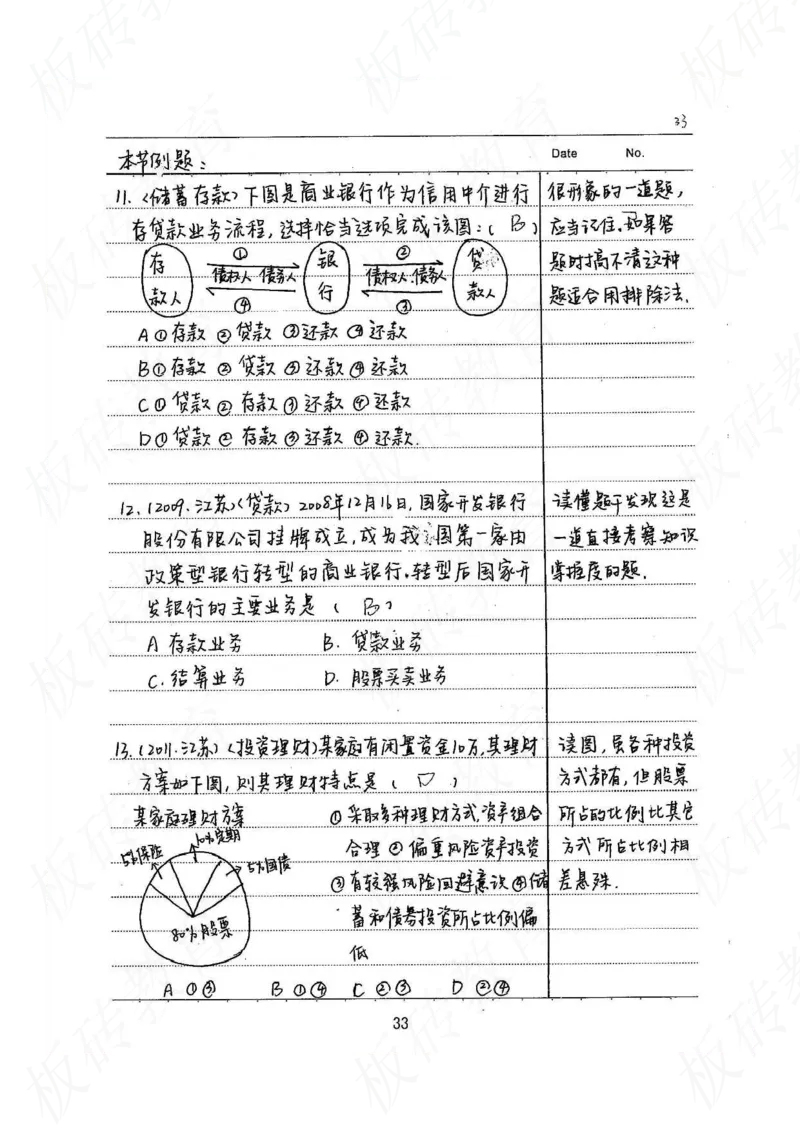 33
本节例题：
Date No.
11.〈储蓄存款〉下图是商业银行作为信用中介进行
存贷款业务流程，选择恰当选项完成该图：（ B ）
存款人 ① 债权人 债务人 ④ 银行 ② 债权人 债务人 ③ 贷款人
A ①存款 ②贷款 ③还款 ④还款
B ①存款 ②贷款 ③还款 ④还款
C ①贷款 ②存款 ③还款 ④还款
D ①贷款 ②存款 ③还款 ④还款.
很形象的一道题，
应当记住.如果答
题时搞不清这种
题适合用排除法.
12.（2009.江苏）〈贷款〉2008年12月16日，国家开发银行
股份有限公司挂牌成立，成为我国第一家由
政策型银行转型的商业银行.转型后国家开
发银行的主要业务是（ B ）
A 存款业务 B. 贷款业务
C. 结算业务 D. 股票买卖业务
读懂题干发现这是
一道直接考察知识
掌握度的题.
13.（2011.江苏）〈投资理财〉某家庭有闲置资金10万，其理财
方案如下图，则其理财特点是（ D ）
某家庭理财方案
5%保险
10%定期
5%国债
80%股票
①采取多种理财方式，资产组合
合理 ②偏重风险资产投资
③有较强风险回避意识 ④储
蓄和债券投资所占比例偏
低
A ①③ B ①④ C ②③ D ②④
读图，虽各种投资
方式都有，但股票
所占的比例比其它
方式所占比例相
差悬殊.
33
板砖教育